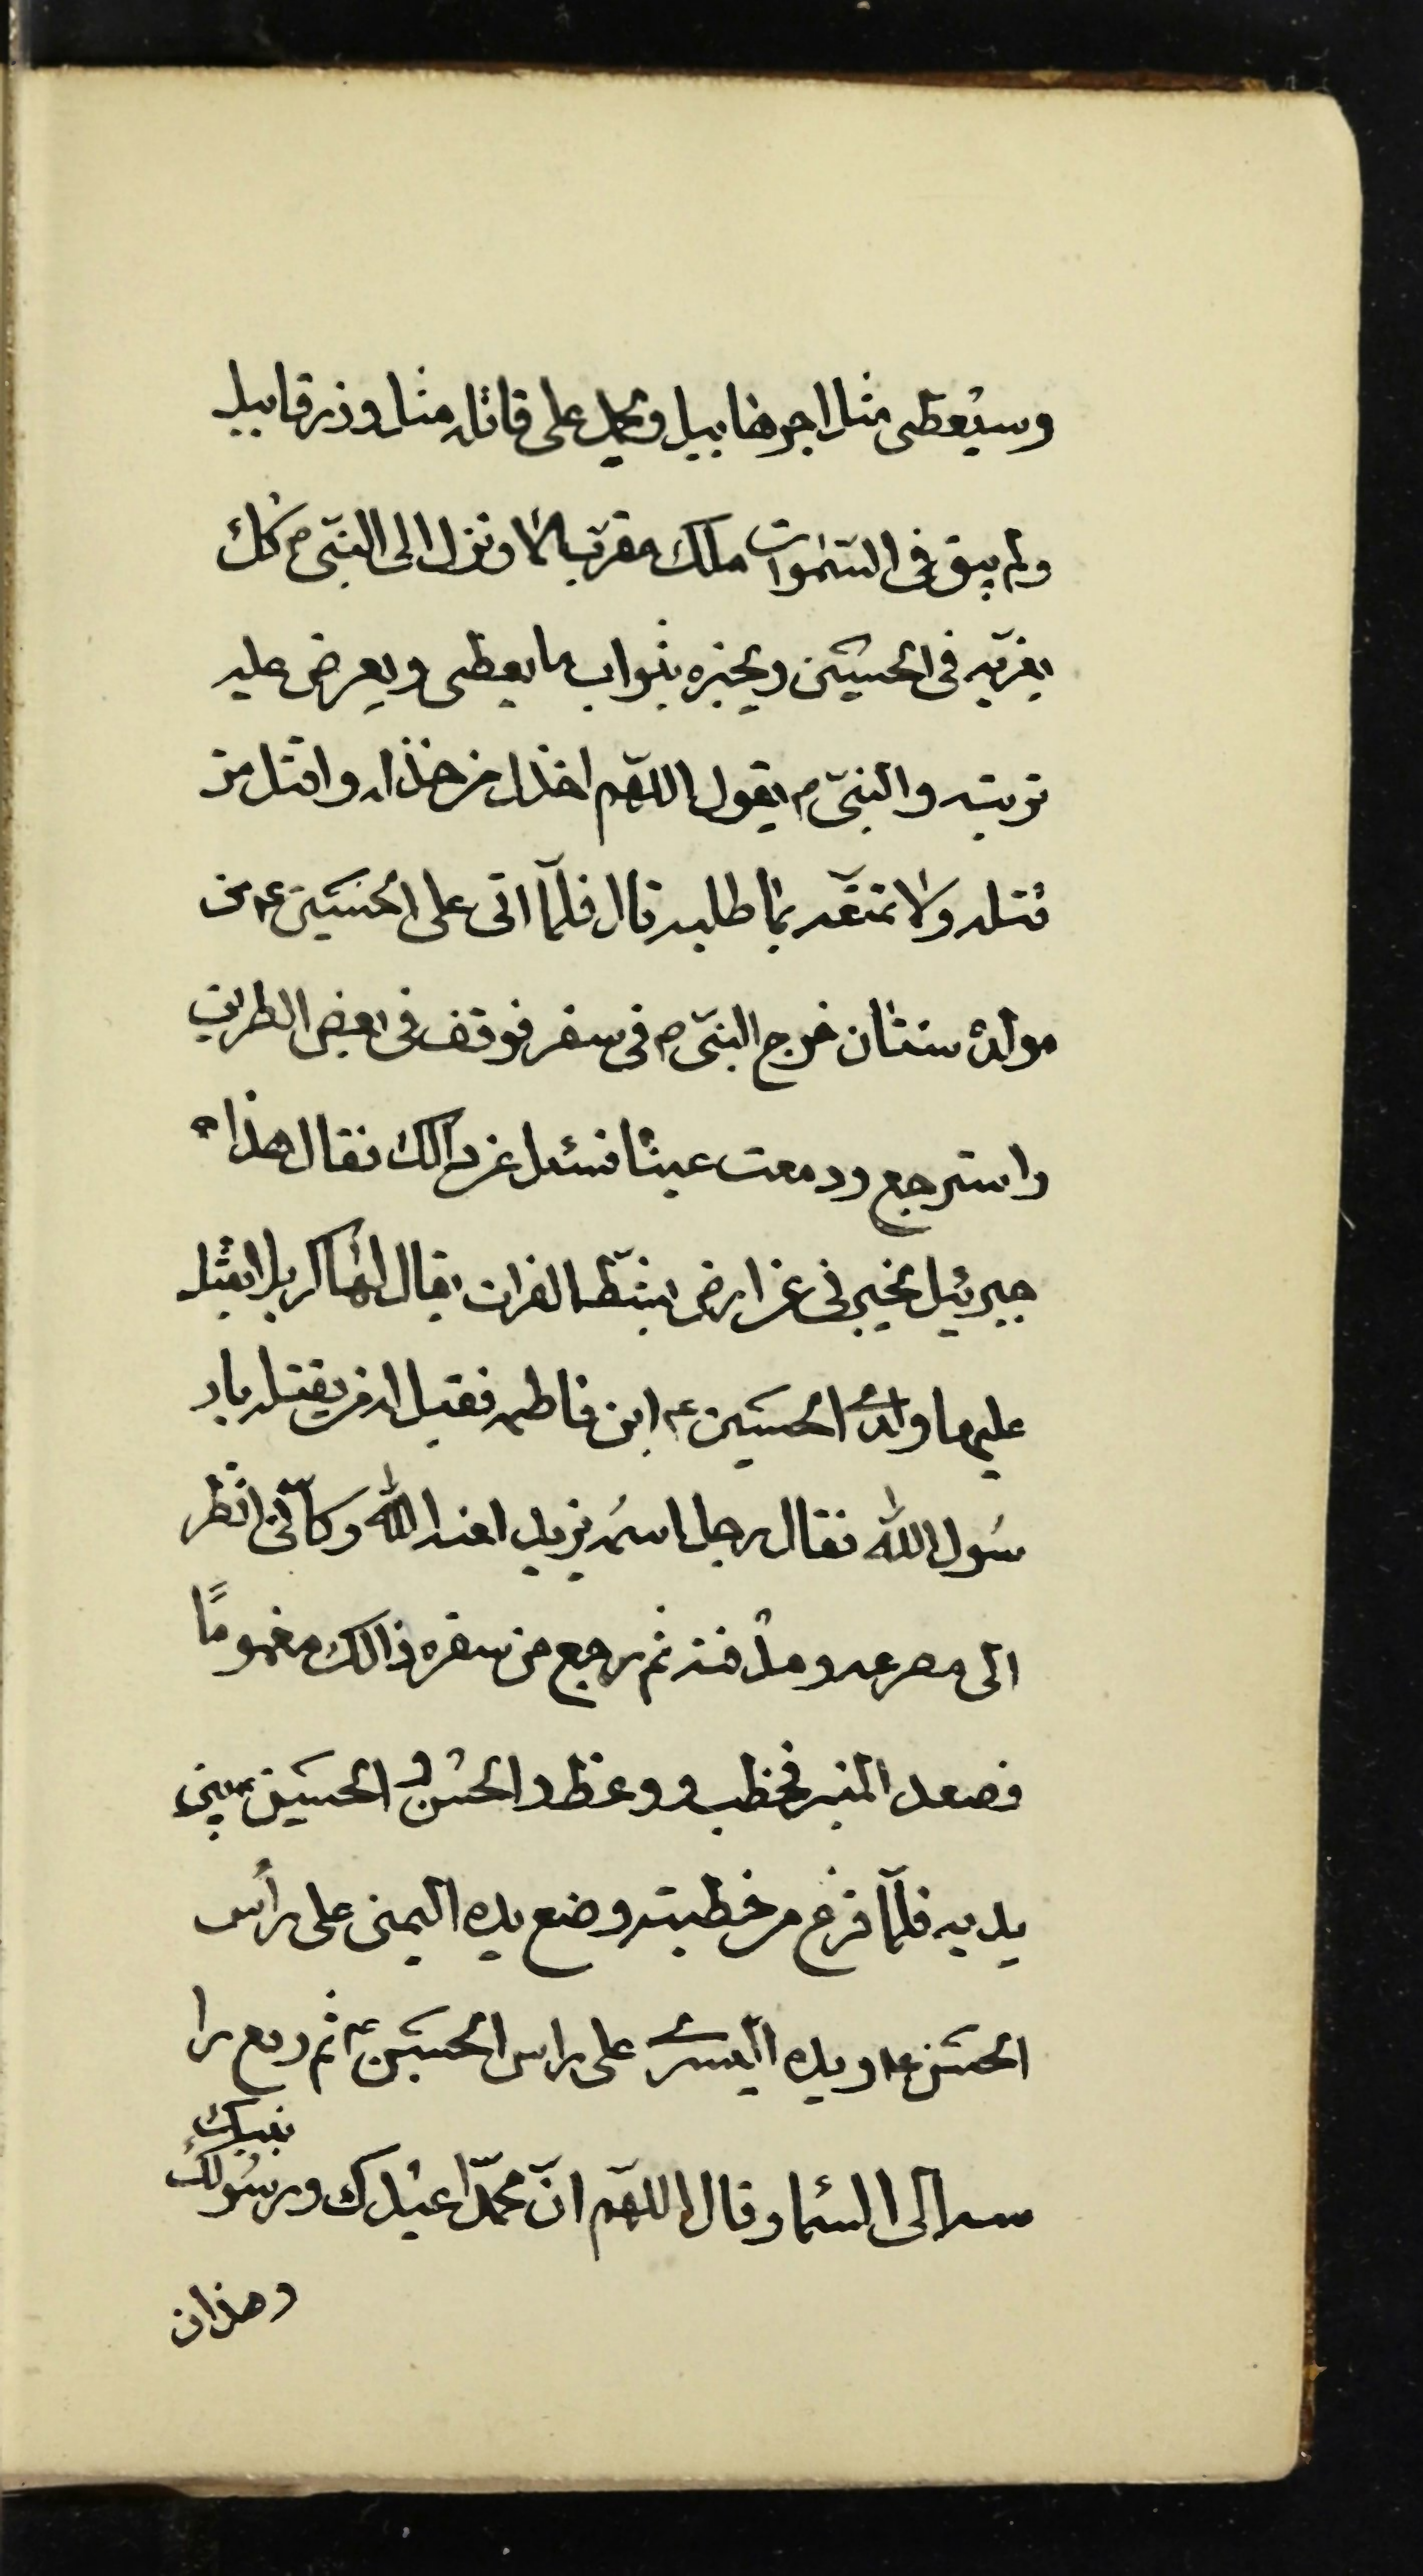 وسيُعطى مثل اجر هابيل ويحمل على قاتله مثل وزر قابيل
ولم يبق في السّمٰوات ملك مقرّب الا ونزل الى النبّي ص كلٌ
يعزّيه في الحسين ويخبره بثواب ما يعطى ويعرض عليه
تربته والنبّي ص يقول اللهّم اخذل من خذله واقتل من
قتله ولا تمتعّه بما طلبه قال فلمّا اتى على الحسين ع من
مولده سنتان خرج النبّي ص في سفر فوقف في بعض الطريق
واسترجع ودمعت عيناه فسئل عن ذالك فقال هذا
جبرئيل يخبرني عن ارض بشطّ الفرات يقال لها كربلا يقتل
عليها ولدي الحسين ع ابن فاطمه فقيل له من يقتله يا ر
سُول الله فقال رجل اسمُه يزيد لعنه الله وكاّني انظر
الى مصرعه ومدفنه ثم رجع من سفره ذالك مغمومًا
فصعد المنبر فخطب ووعظ والحسن و الحسين ع بين
يديه فلمّا فرغ من خطبته وضع يده اليمنى على رأس
الحسن ع ويده اليسرى على راس الحسين ع ثم رفع را
سه الى السما وقال اللهّم انّ محمّدا عبدك ورسُولك نبيك
وهذان